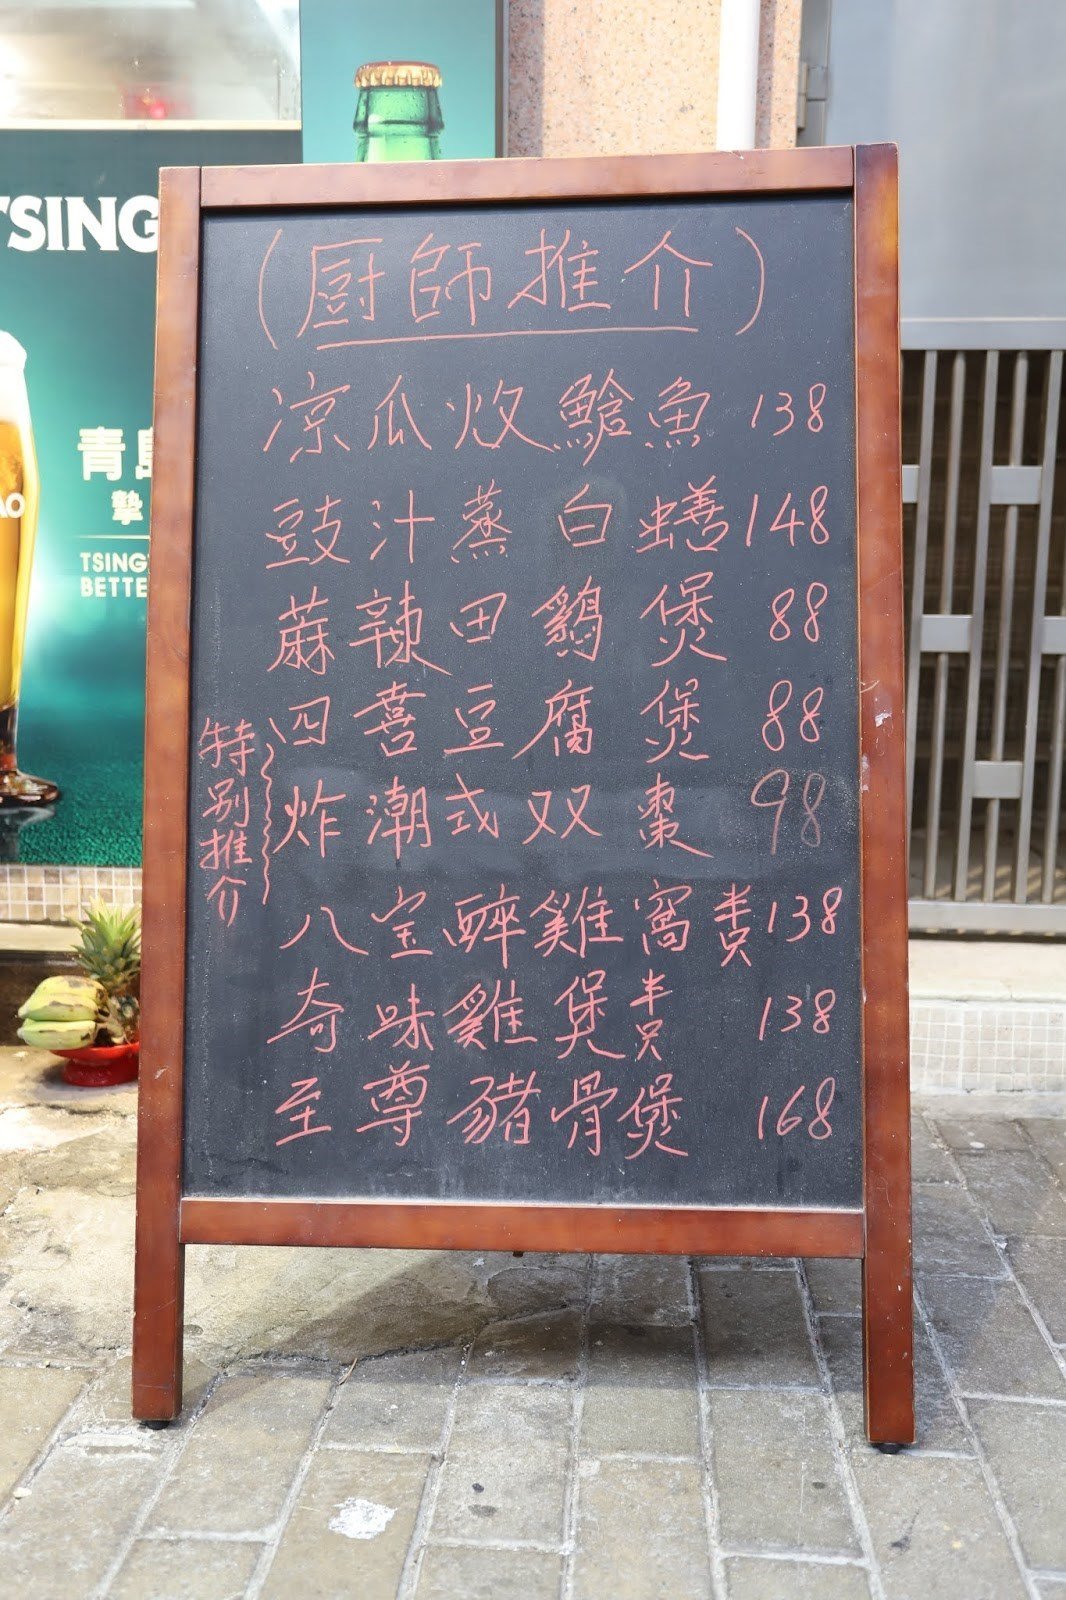 TSING
青島
摯
TSING
BETTE
AO
(厨師推介)
凉瓜炆鱠魚 138
豉汁蒸白蟮 148
蔴辣田鷄煲 88
四喜豆腐煲 88
特别推介
炸潮式双棗 98
八宝醉雞窩 半只 138
奇味雞煲 半只 138
至尊豬骨煲 168